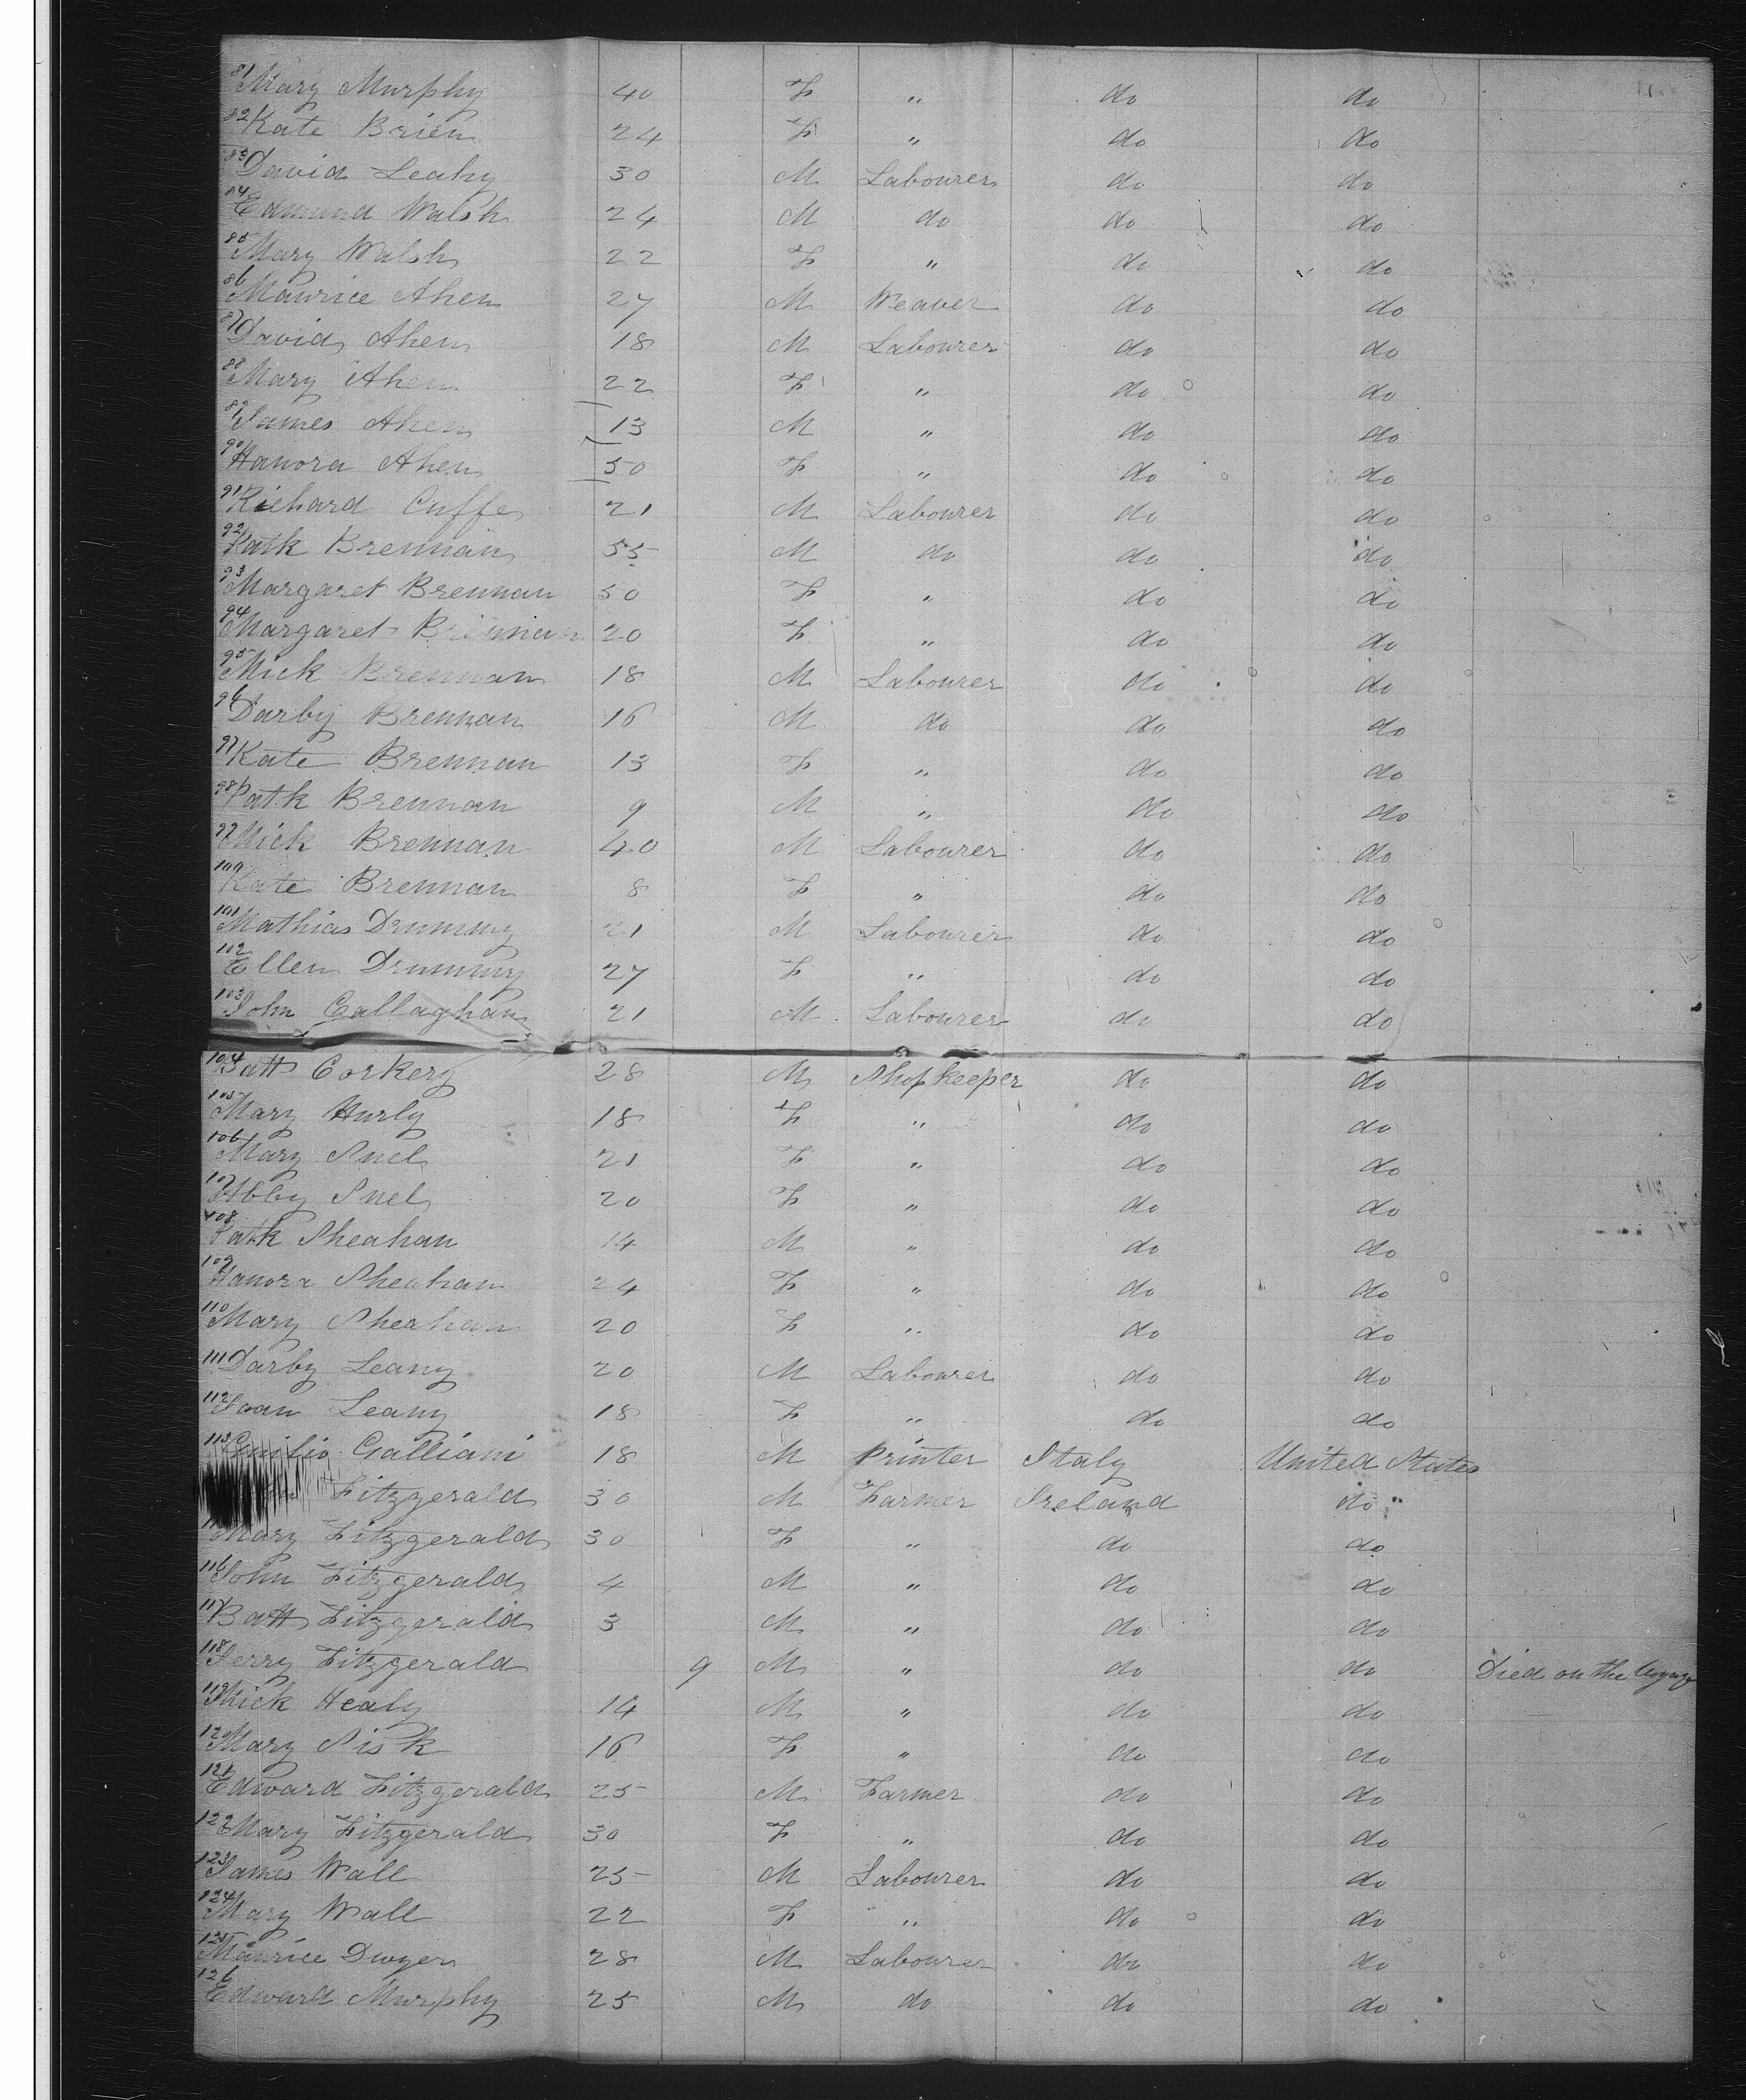 81 Mary Murphy 40 F " do do
82 Kate Brien 24 F " do do
83 David Leahy 30 M Labourer do do
84 Edmund Walsh 24 M do do do
85 Mary Walsh 22 F " do do
86 Maurice Ahen 27 M Weaver do do
87 David Ahen 18 M Labourer do do
88 Mary Ahen 22 F " do do
89 James Ahen 13 M " do do
90 Hanora Ahen 50 F " do do
91 Richard Cuffe 21 M Labourer do do
92 Patk Brennan 55 M do do do
93 Margaret Brennan 50 F " do do
94 Margaret Brennan 20 F " do do
95 Mick Brennan 18 M Labourer do do
96 Darby Brennan 16 M do do do
97 Kate Brennan 13 F " do do
98 Patk Brennan 9 M " do do
99 Mick Brennan 40 M Labourer do do
100 Kate Brennan 8 F " do do
101 Mathias Drummy 21 M Labourer do do
102 Ellen Drummy 27 F " do do
103 John Callaghan 21 M Labourer do do
104 Batt Corkery 28 M Shopkeeper do do
105 Mary Hurly 18 F " do do
106 Mary Snel 21 F " do do
107 Abby Snel 20 F " do do
108 Patk Sheahan 14 M " do do
109 Hanora Sheahan 24 F " do do
110 Mary Sheahan 20 F " do do
111 Darby Leany 20 M Labourer do do
112 Joan Leany 18 F " do do
113 Emilio Galliani 18 M Printer Italy United States
Fitzgerald 30 M Farmer Ireland do "
Mary Fitzgerald 30 F " do do
116 John Fitzgerald 4 M " do do
117 Batt Fitzgerald 3 M " do do
118 Jerry Fitzgerald 9 M " do do Died on the Voyage
119 Mick Healy 14 M " do do
120 Mary Sisk 16 F " do do
121 Edward Fitzgerald 25 M Farmer do do
122 Mary Fitzgerald 30 F " do do
123 James Wall 25 M Labourer do do
124 Mary Wall 22 F " do do
125 Maurice Dwyer 28 M Labourer do do
126 Edward Murphy 25 M do do do